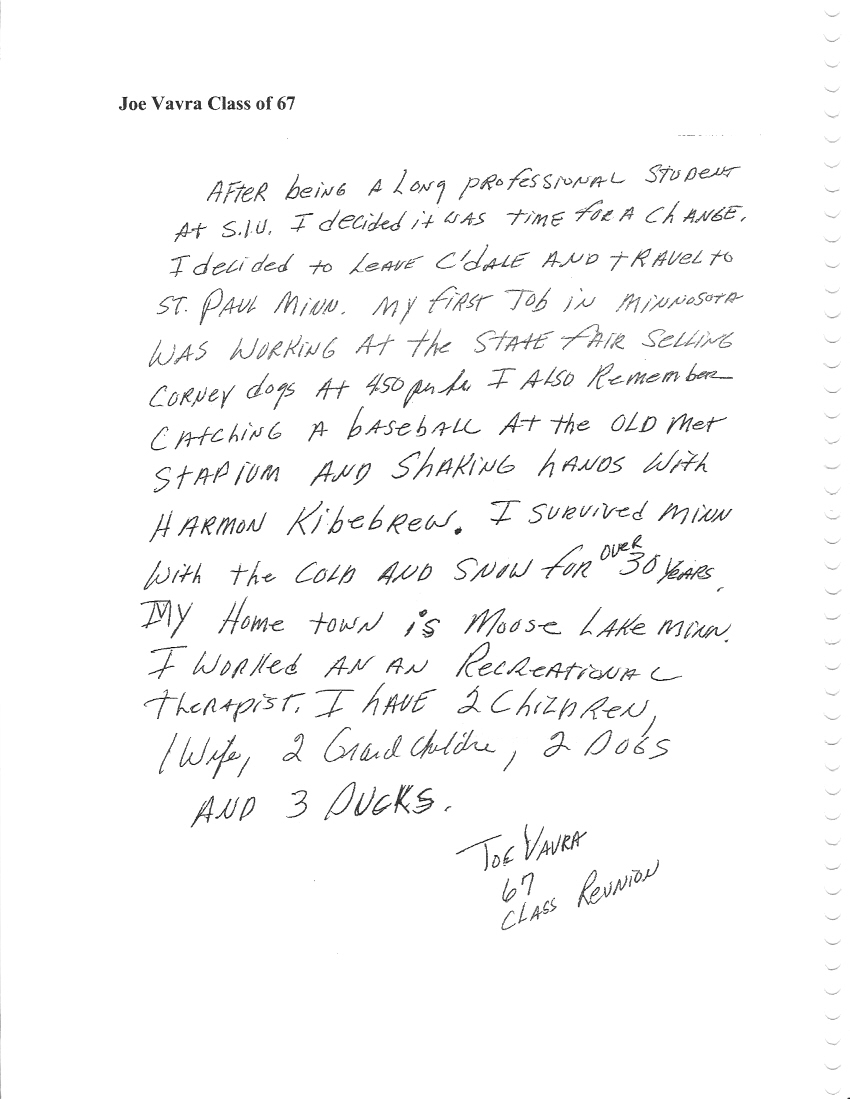 Joe Vavra Class of 67
AFTER being A Long professional Student
At S.I.U. I decided it was time for A Change.
I decided to Leave C'dale and travel to
St. Paul Minn. My first Job in Minnosota
was working At the State fair selling
Corney dogs At 450 per hr I Also Remember
Catching A baseball At the OLD Met
Stadium and Shaking hands with
Harmon Kibebrew. I survived Minn
with the cold and snow for over 30 years.
My Home town is Moose Lake Minn.
I worked an an Recreational
therapist. I have 2 Children,
1 Wife, 2 Grand Childre, 2 Dogs
and 3 Ducks.
Joe Vavra
67
Class Reunion